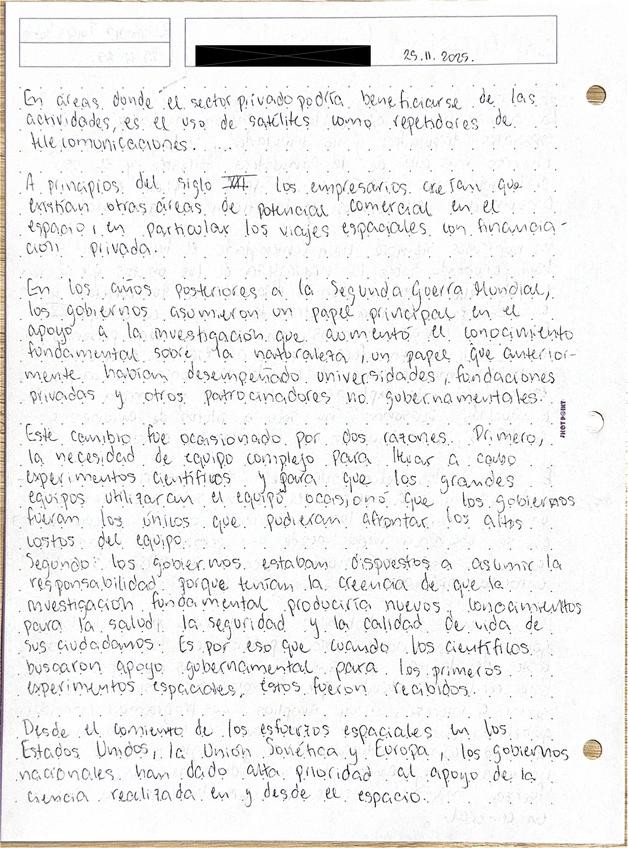 25.11.2025.
En áreas donde el sector privado podría beneficiarse de las
actividades, es el uso de satélites como repetidores de
telecomunicaciones.
A principios del siglo XXI los empresarios creían que
existían otras áreas de potencial comercial en el
espacio, en particular los viajes espaciales con financia-
ción privada.
En los años posteriores a la Segunda Guerra Mundial,
los gobiernos asumieron un papel principal en el
apoyo a la investigación que aumentó el conocimiento
fundamental sobre la naturaleza, un papel que anterior-
mente habían desempeñado universidades, fundaciones
privadas y otros patrocinadores no gubernamentales.
Este cambio fue ocasionado por dos razones. Primero,
la necesidad de equipo complejo para llevar a cabo
experimentos científicos y para que los grandes
equipos utilizaran el equipo ocasionó que los gobiernos
fueran los únicos que pudieran afrontar los altos
costos del equipo.
Segundo: los gobiernos estaban dispuestos a asumir la
responsabilidad porque tenían la creencia de que la
investigación fundamental produciría nuevos conocimientos
para la salud, la seguridad y la calidad de vida de
sus ciudadanos. Es por eso que cuando los científicos
buscaron apoyo gubernamental para los primeros
experimentos espaciales, éstos fueron recibidos.
Desde el comienzo de los esfuerzos espaciales en los
Estados Unidos, la Unión Soviética y Europa, los gobiernos
nacionales han dado alta prioridad al apoyo de la
ciencia realizada en y desde el espacio.